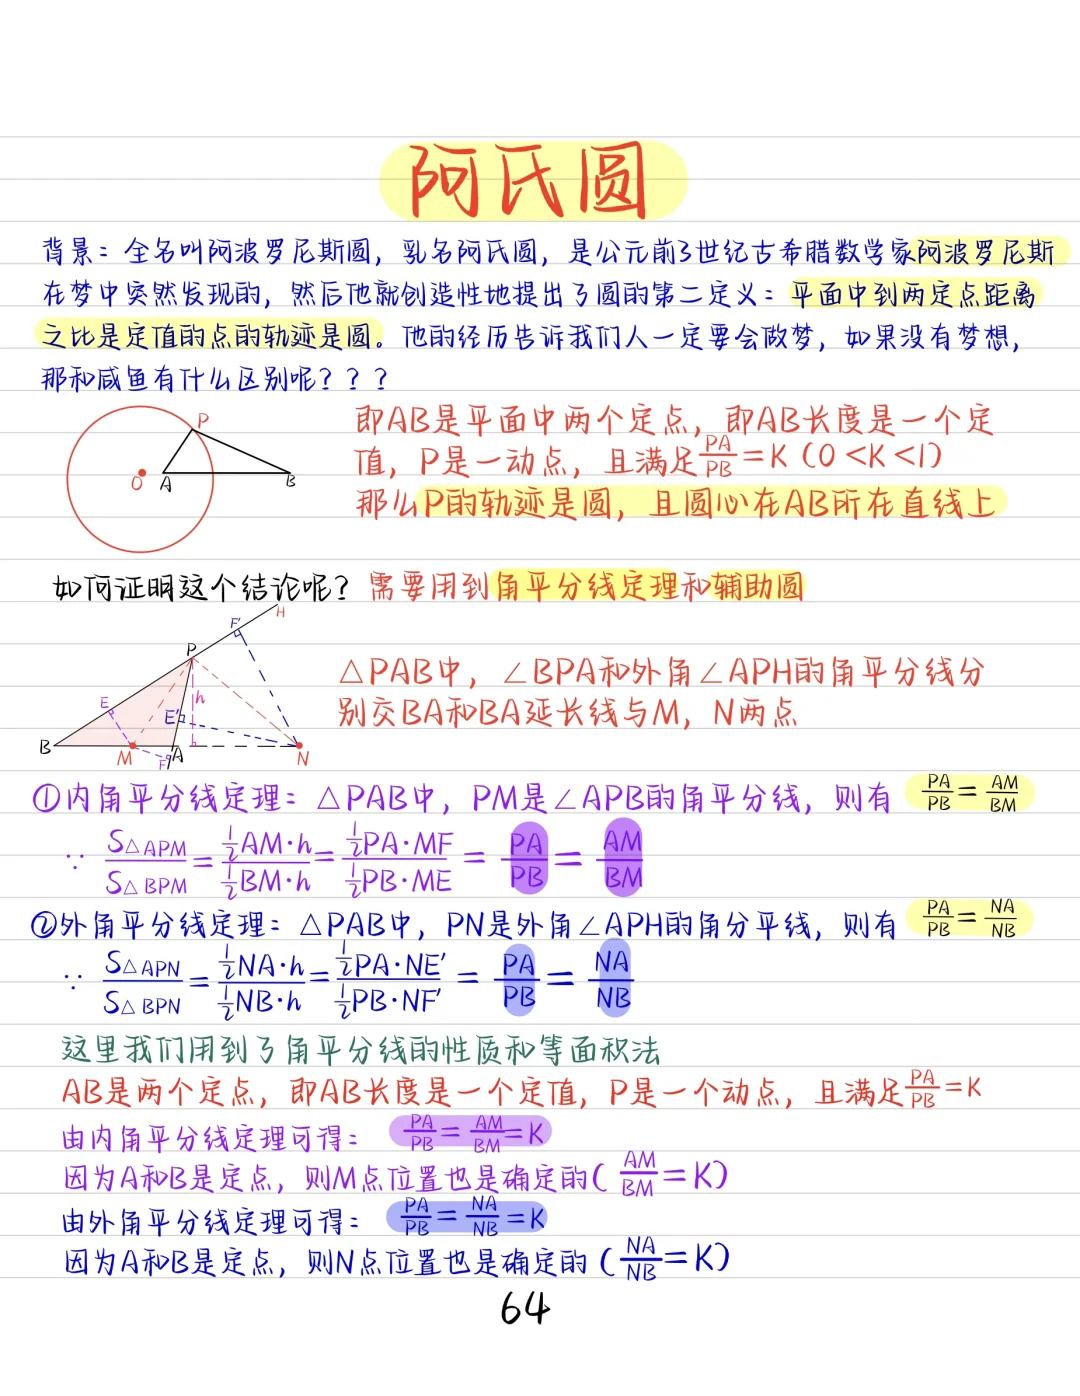 阿氏圆
背景：全名叫阿波罗尼斯圆，乳名阿氏圆，是公元前3世纪古希腊数学家阿波罗尼斯
在梦中突然发现的，然后他就创造性地提出了圆的第二定义：平面中到两定点距离
之比是定值的点的轨迹是圆。他的经历告诉我们人一定要会做梦，如果没有梦想，
那和咸鱼有什么区别呢？？？
P
O A B
即AB是平面中两个定点，即AB长度是一个定
值，P是一动点，且满足PA/PB=K（0<K<1）
那么P的轨迹是圆，且圆心在AB所在直线上
如何证明这个结论呢？需要用到角平分线定理和辅助圆
F' H
P
E E' h
B M F A N
△PAB中，∠BPA和外角∠APH的角平分线分
别交BA和BA延长线与M，N两点
①内角平分线定理：△PAB中，PM是∠APB的角平分线，则有 PA/PB=AM/BM
∵ S△APM/S△BPM=½AM·h/½BM·h=½PA·MF/½PB·ME=PA/PB=AM/BM
②外角平分线定理：△PAB中，PN是外角∠APH的角分平线，则有 PA/PB=NA/NB
∵ S△APN/S△BPN=½NA·h/½NB·h=½PA·NE'/½PB·NF'=PA/PB=NA/NB
这里我们用到了角平分线的性质和等面积法
AB是两个定点，即AB长度是一个定值，P是一个动点，且满足PA/PB=K
由内角平分线定理可得：PA/PB=AM/BM=K
因为A和B是定点，则M点位置也是确定的（AM/BM=K）
由外角平分线定理可得：PA/PB=NA/NB=K
因为A和B是定点，则N点位置也是确定的（NA/NB=K）
64